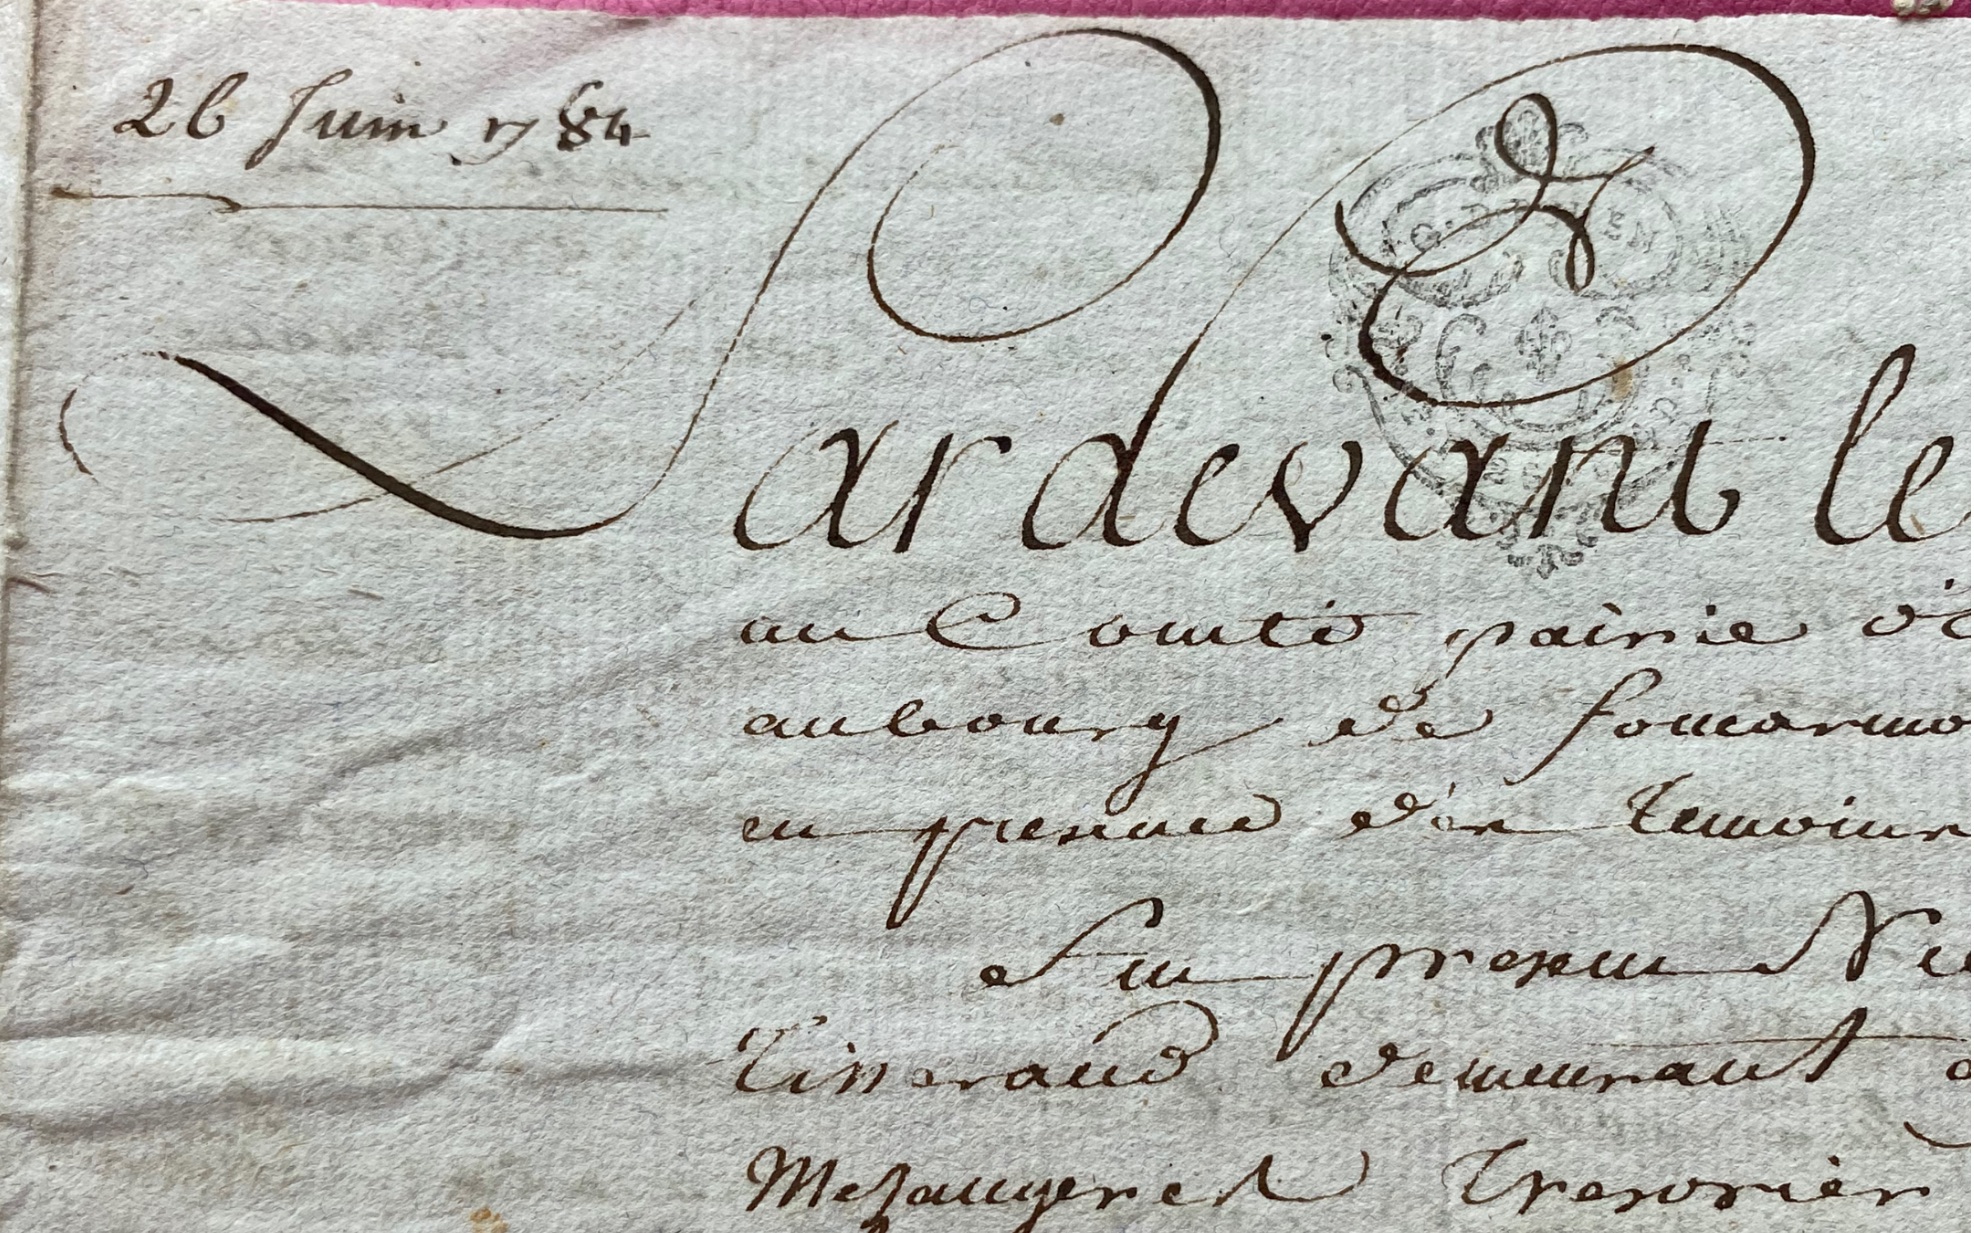 26 Juin 1784
Pardevant le
au Comté pairie d'E
au bourg de foucarmo
en presence des temoins
Fut present Nic
Tisserand demeurant
Mesangeres Tresorier